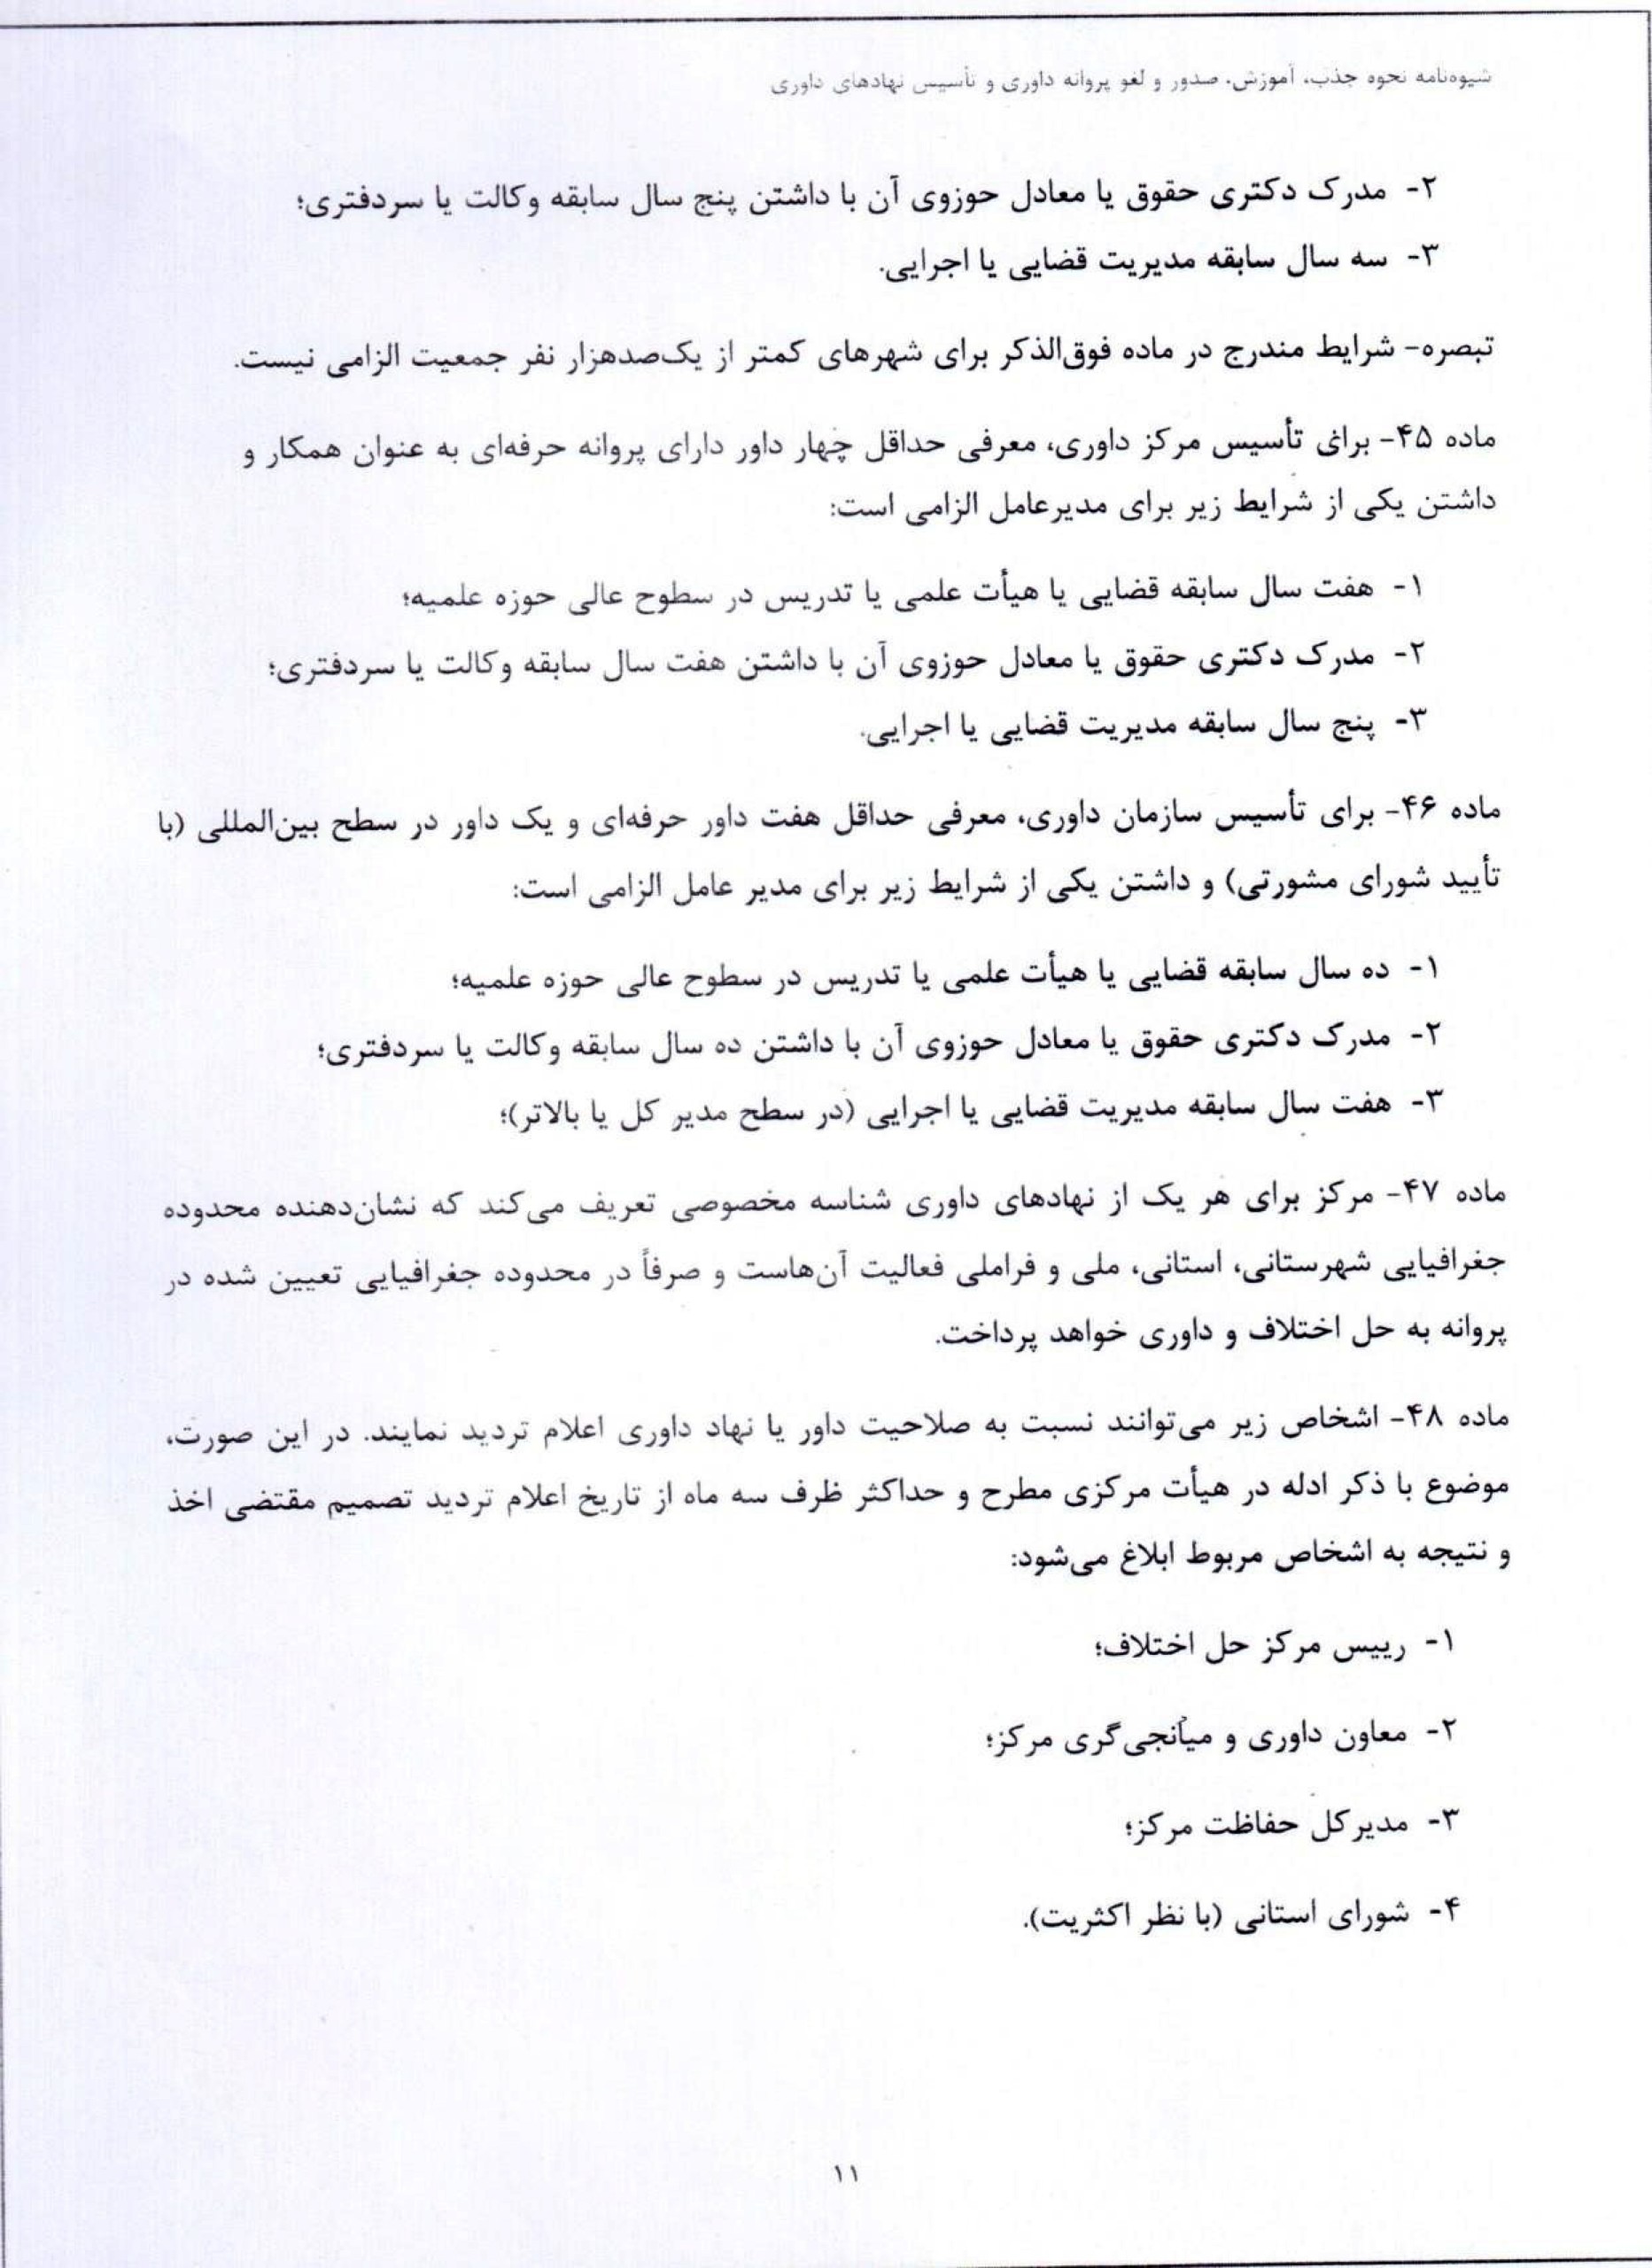 شیوه‌نامه نحوه جذب، آموزش، صدور و لغو پروانه داوری و تأسیس نهادهای داوری
۲- مدرک دکتری حقوق یا معادل حوزوی آن با داشتن پنج سال سابقه وکالت یا سردفتری؛
۳- سه سال سابقه مدیریت قضایی یا اجرایی.
تبصره- شرایط مندرج در ماده فوق‌الذکر برای شهرهای کمتر از یک‌صدهزار نفر جمعیت الزامی نیست.
ماده ۴۵- برای تأسیس مرکز داوری، معرفی حداقل چهار داور دارای پروانه حرفه‌ای به عنوان همکار و
داشتن یکی از شرایط زیر برای مدیرعامل الزامی است:
۱- هفت سال سابقه قضایی یا هیأت علمی یا تدریس در سطوح عالی حوزه علمیه؛
۲- مدرک دکتری حقوق یا معادل حوزوی آن با داشتن هفت سال سابقه وکالت یا سردفتری؛
۳- پنج سال سابقه مدیریت قضایی یا اجرایی.
ماده ۴۶- برای تأسیس سازمان داوری، معرفی حداقل هفت داور حرفه‌ای و یک داور در سطح بین‌المللی (با
تأیید شورای مشورتی) و داشتن یکی از شرایط زیر برای مدیر عامل الزامی است:
۱- ده سال سابقه قضایی یا هیأت علمی یا تدریس در سطوح عالی حوزه علمیه؛
۲- مدرک دکتری حقوق یا معادل حوزوی آن با داشتن ده سال سابقه وکالت یا سردفتری؛
۳- هفت سال سابقه مدیریت قضایی یا اجرایی (در سطح مدیر کل یا بالاتر)؛
ماده ۴۷- مرکز برای هر یک از نهادهای داوری شناسه مخصوصی تعریف می‌کند که نشان‌دهنده محدوده
جغرافیایی شهرستانی، استانی، ملی و فراملی فعالیت آن‌هاست و صرفاً در محدوده جغرافیایی تعیین شده در
پروانه به حل اختلاف و داوری خواهد پرداخت.
ماده ۴۸- اشخاص زیر می‌توانند نسبت به صلاحیت داور یا نهاد داوری اعلام تردید نمایند. در این صورت،
موضوع با ذکر ادله در هیأت مرکزی مطرح و حداکثر ظرف سه ماه از تاریخ اعلام تردید تصمیم مقتضی اخذ
و نتیجه به اشخاص مربوط ابلاغ می‌شود:
۱- رییس مرکز حل اختلاف؛
۲- معاون داوری و میانجی‌گری مرکز؛
۳- مدیرکل حفاظت مرکز؛
۴- شورای استانی (با نظر اکثریت).
۱۱